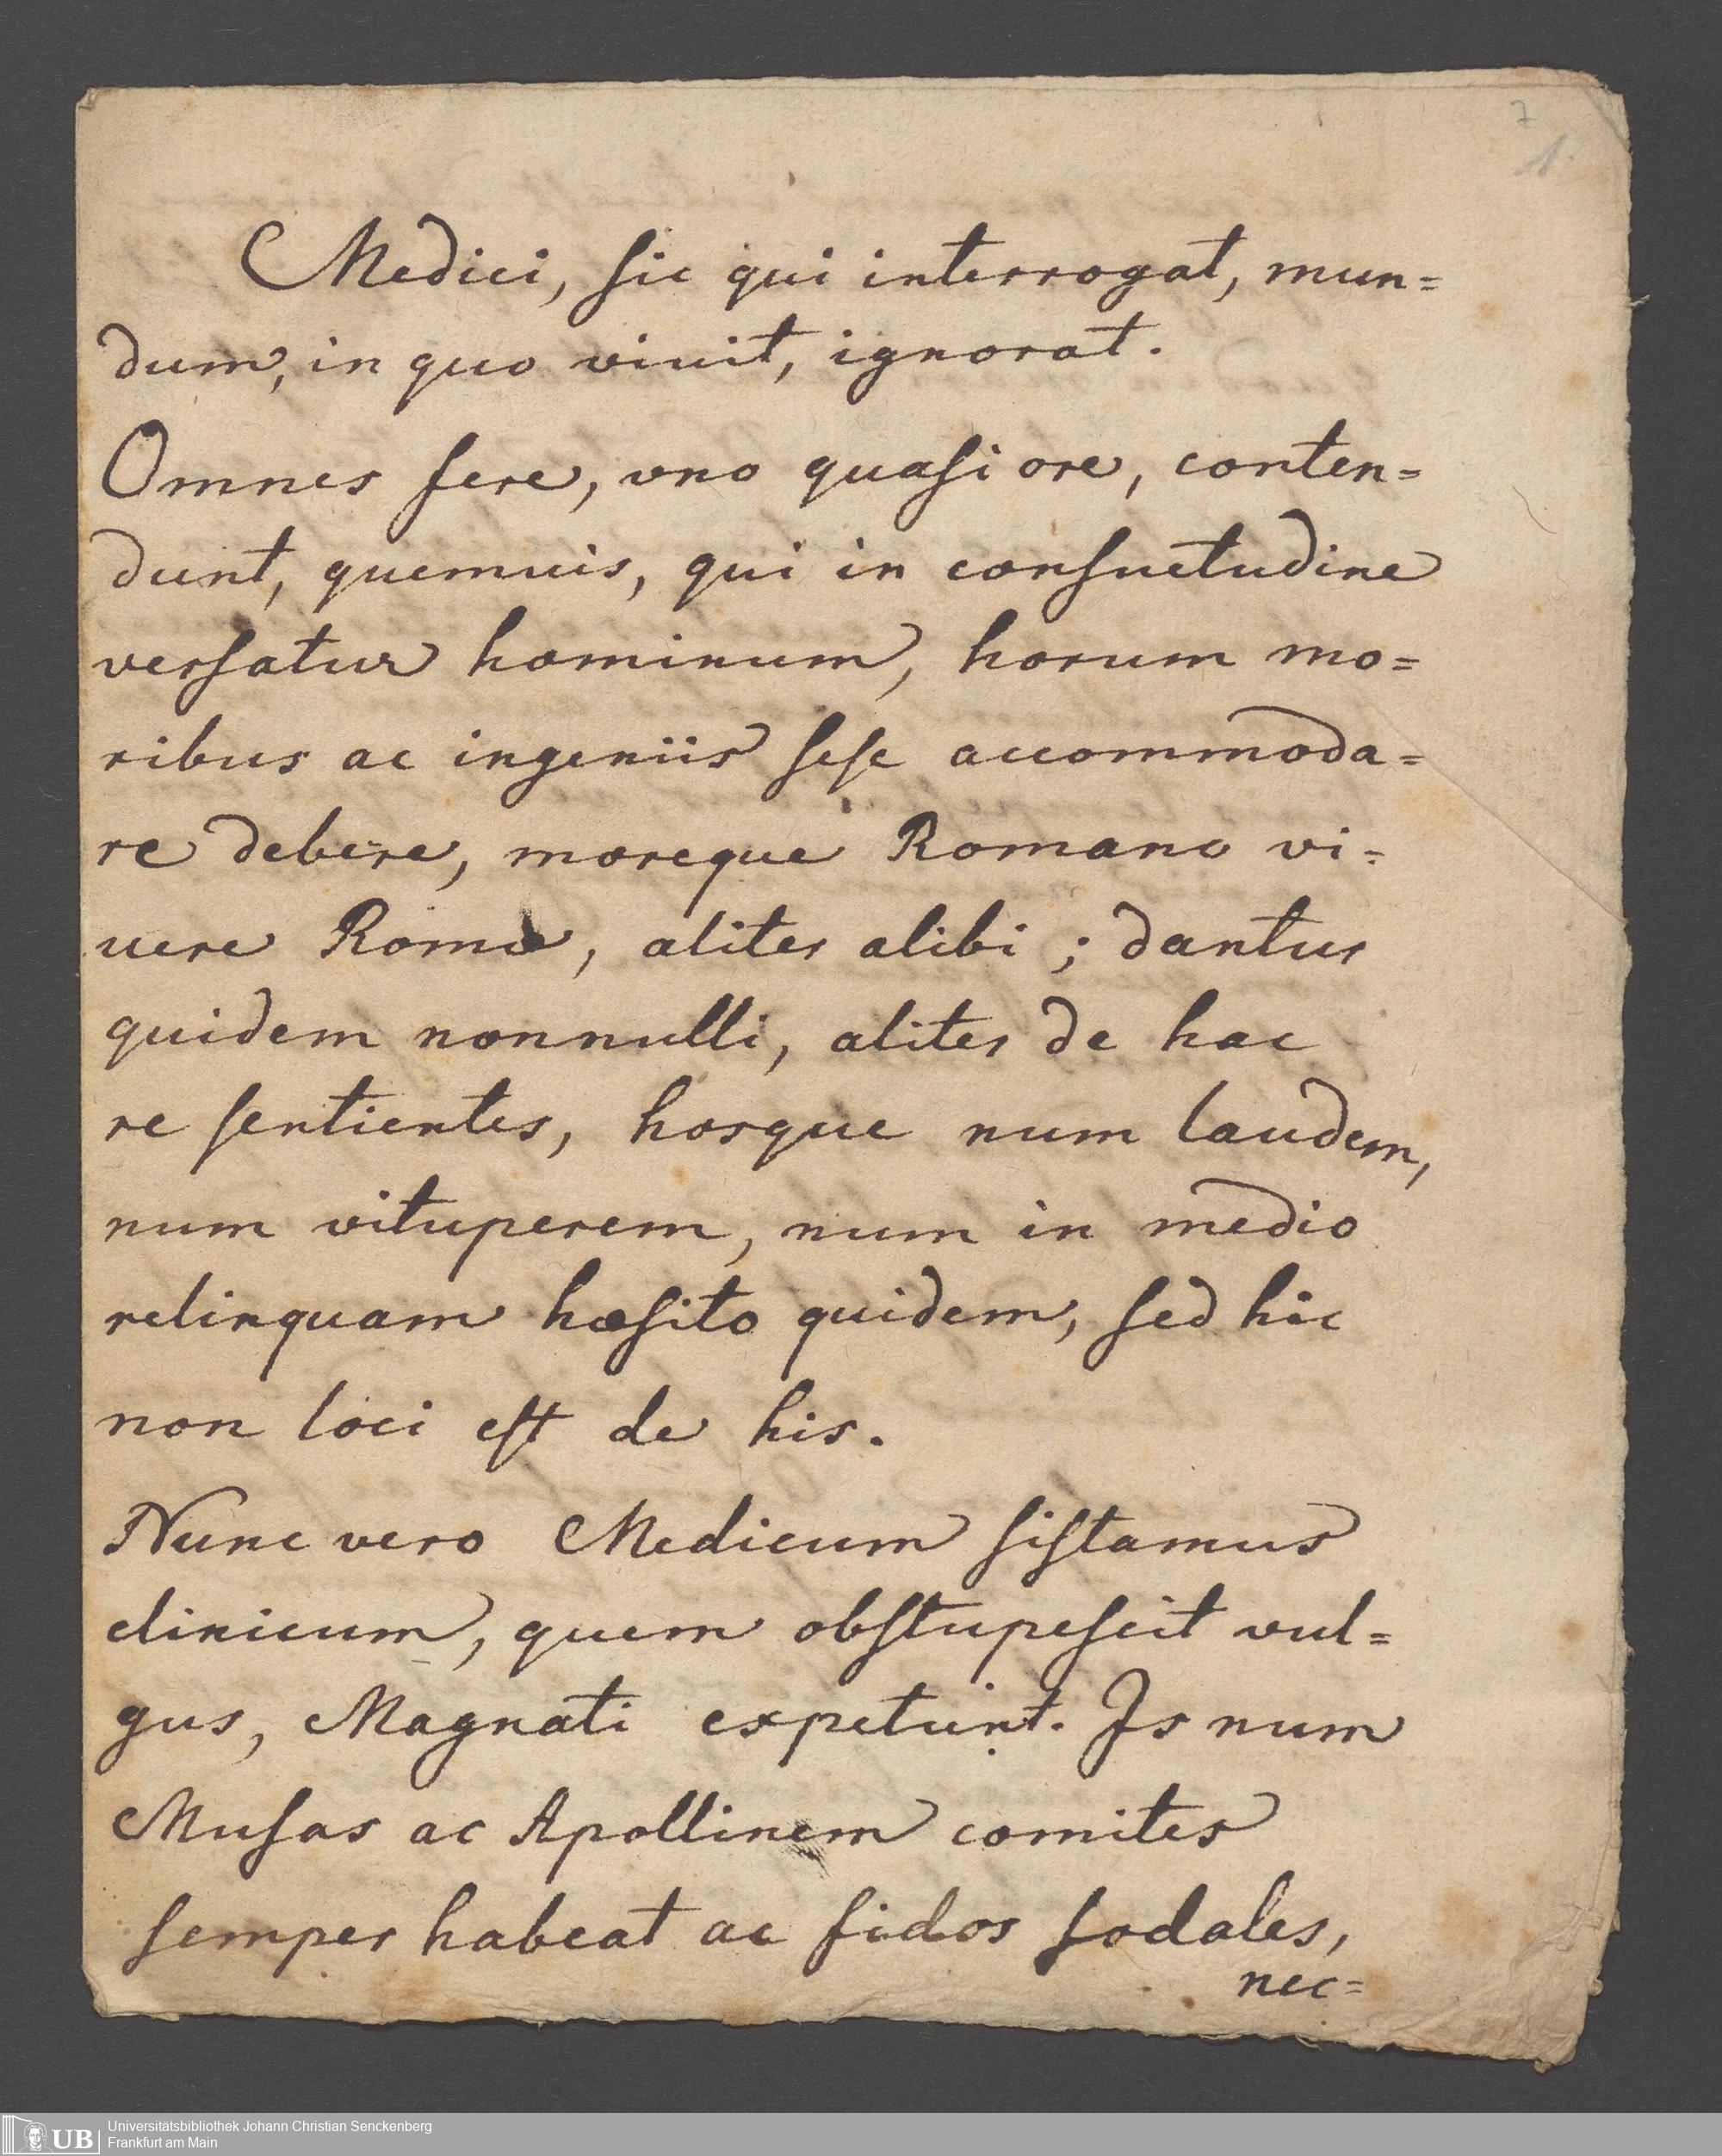 7
1.
Medici, sic qui interrogat, mun=
dum, in quo viuit, ignorat.
Omnes fere, vno quasi ore, conten=
dunt, quemuis, qui in consuetudine
versatur hominum, horum mo=
ribus ac ingeniis sese accommoda=
re debere, moreque Romano vi=
uere Romæ, aliter alibi; dantur
quidem nonnulli, aliter de hac
re sentientes, hosque num laudem,
num vituperem, num in medio
relinquam hæsito quidem, sed hic
non loci est de his.
Nunc vero Medicum sistamus
clinicum, quem obstupescit vul=
gus, Magnati expetunt. Is num
Musas ac Apollinem comites
semper habeat ac fidos sodales,
nec=
UB
Universitätsbibliothek Johann Christian Senckenberg
Frankfurt am Main